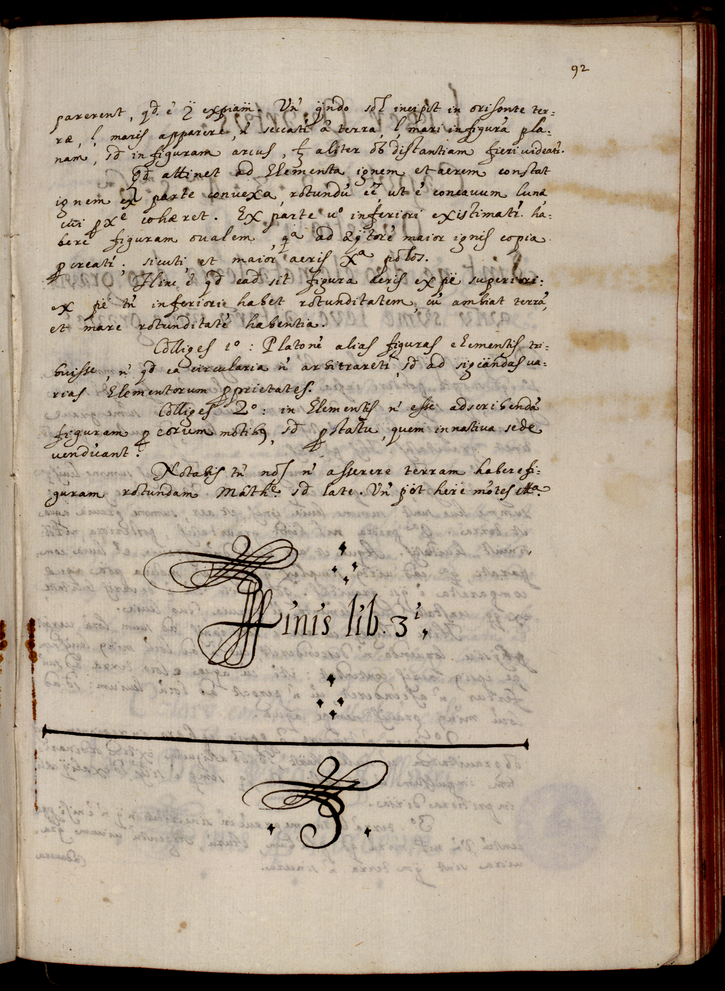 92
parerent, qd. é ɔ̃ expiam̃. Uñ qñdo sol incipit in orisonte ter-
ræ, l maris apparere, ñ secati à terra, l mari in figurã pla-
nam, sd in figuram arcus, aliter ob distantiam fieri videati.
Qd attinet ad Elementa ignem et aerem constat
ignem ex parte convexa, rotundũ eẽ ut é concavum lunæ
cui pxᵉ cohæret. Ex parte vº inferiori existimati ha-
bere figuram ovalem, qᵃ ad æqtorẽ maior ignis copia
pcreati, sicuti et maior aeris xᵃ polos.
Hinc é qd ead sit figura aeris ex pẽ superiori:
ex pẽ tñ inferiori habet rotunditatem, cũ ambiat terrã,
et mare rotunditatẽ habentia.
Colliges 1º: Platonẽ alias figuras elementis tri-
buisse, ñ qd ea circularia ñ arbitrareti, sd ad sigñandas va-
rias Elementorum pprietates.
Colliges 2º: in Elementis ñ esse adscribendã
figuram p eorum motibꝯ, sd p statu, quem in nativa sede
vendicant.
Notabis tñ nos ñ asserere terram habere fi-
guram rotundam Mathᶜᵉ sd late. Uñ pot here mõtes &ᵃ.
Finis lib. 3i.